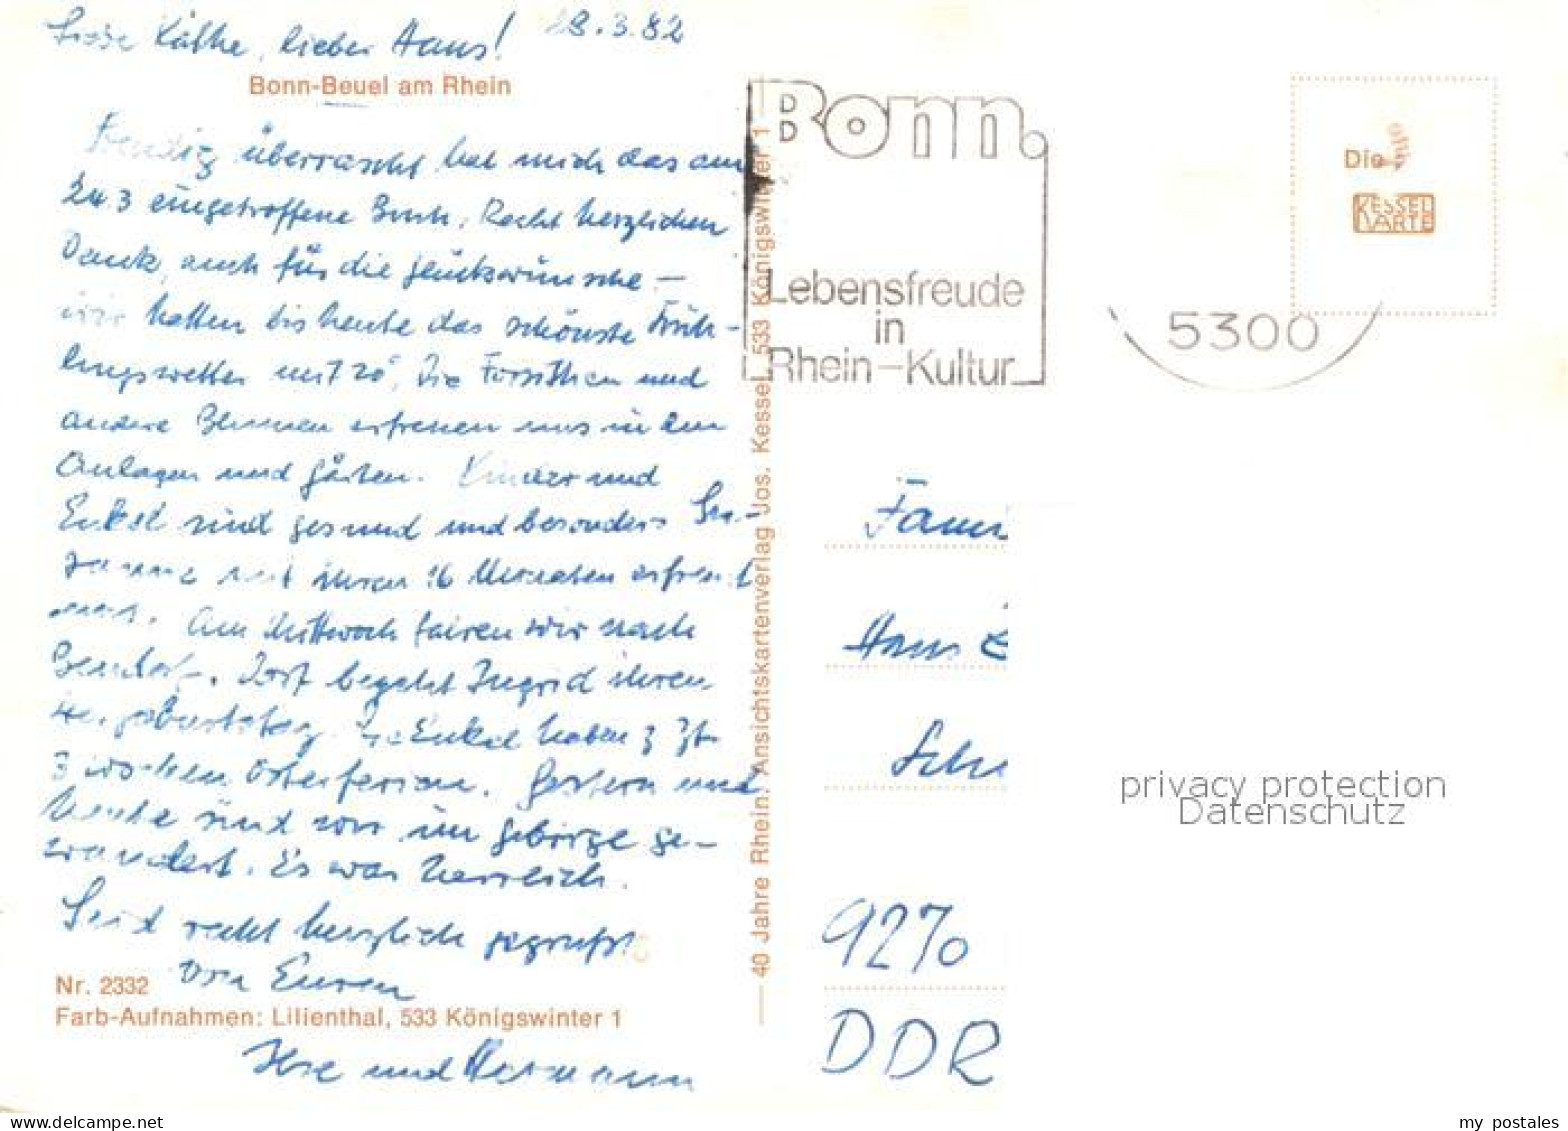 Liebe Käthe, lieber Hans! 28.3.82
Bonn-Beuel am Rhein
Freudig überrascht hat mich das am
24.3 eingetroffene Buch. Recht herzlichen
Dank, auch für die Glückwünsche –
wir hatten bis heute das schönste Früh-
lingswetter mit 20°, Die Forsythien und
andere Blumen erfreuen uns in den
Anlagen und Gärten. Kinder und
Enkel sind gesund und besonders Su-
sanne mit ihren 16 Monaten erfreut
uns. Am Mittwoch fahren wir nach
Bendorf. Dort begeht Ingrid ihren
Geburtstag. Die Enkel haben z Zt
3 Wochen Osterferien. Gestern und
heute sind wir im Gebirge ge-
wandert. Es war herrlich.
Seid recht herzlich gegrüßt
von Euren
Nr. 2332
Farb-Aufnahmen: Lilienthal, 533 Königswinter 1
Ilse und Hermann
40 Jahre Rhein. Ansichtskartenverlag Jos. Kessel, 533 Königswinter 1
Bonn.
Lebensfreude
in
Rhein-Kultur
5300
Die
KESSEL
KARTE
Fami
Hans E
Sch
9270
DDR
privacy protection
Datenschutz
my postales